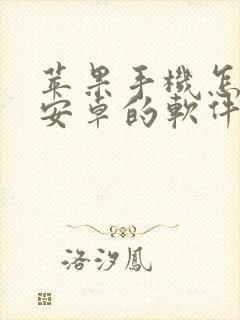 苹果手機怎
安卓的軟件
洛汐鳳